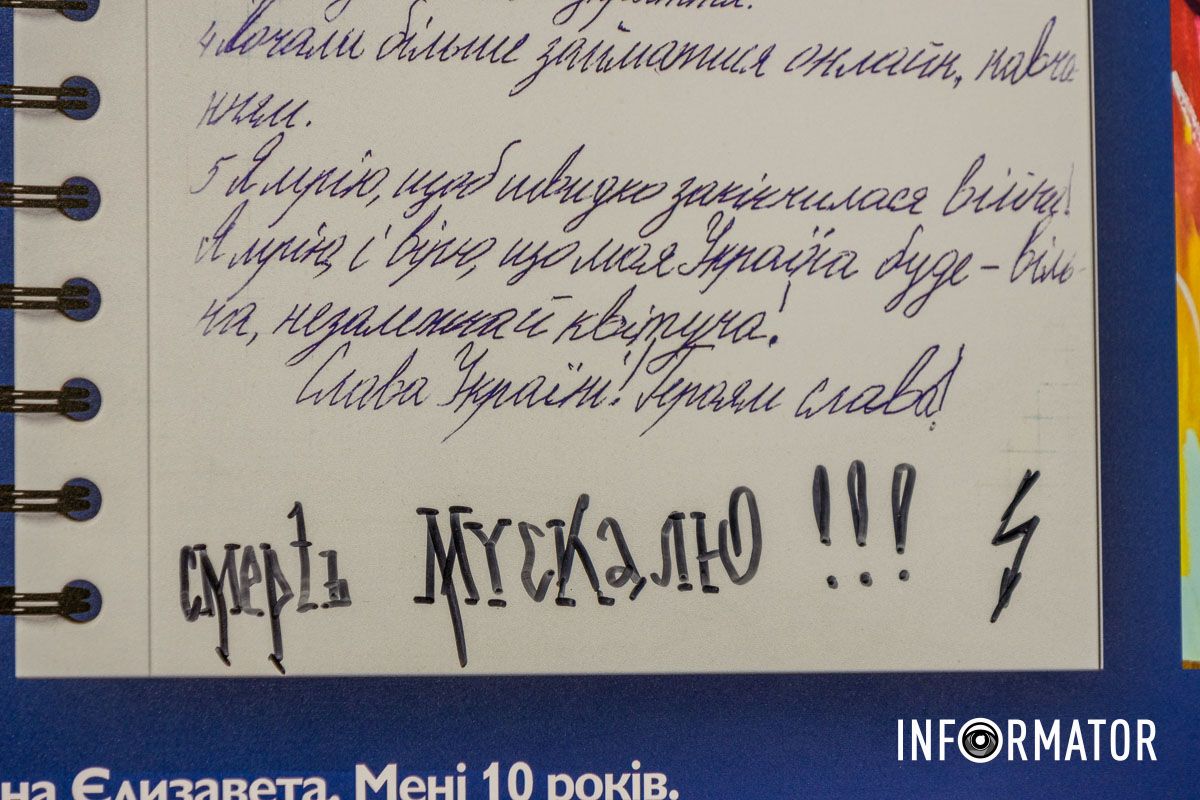 4 Почали більше займатися онлайн, навча
нням.
5 Я мрію, щоб швидко закінчилася війна!
Я мрію, і вірю, що моя Україна буде – віль-
на, незалежна й квітуча!
Слава Україні! Героям слава!
смерть мускалю !!!
INFORMATOR
на Єлизавета. Мені 10 років.